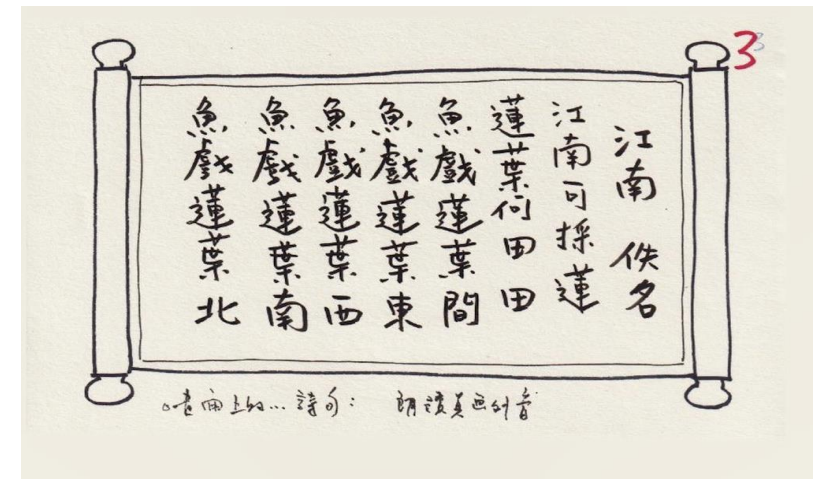 3
江南 佚名
江南可採蓮
蓮葉何田田
魚戲蓮葉間
魚戲蓮葉東
魚戲蓮葉西
魚戲蓮葉南
魚戲蓮葉北
畫面上的...詩句： 朗讀真画外音